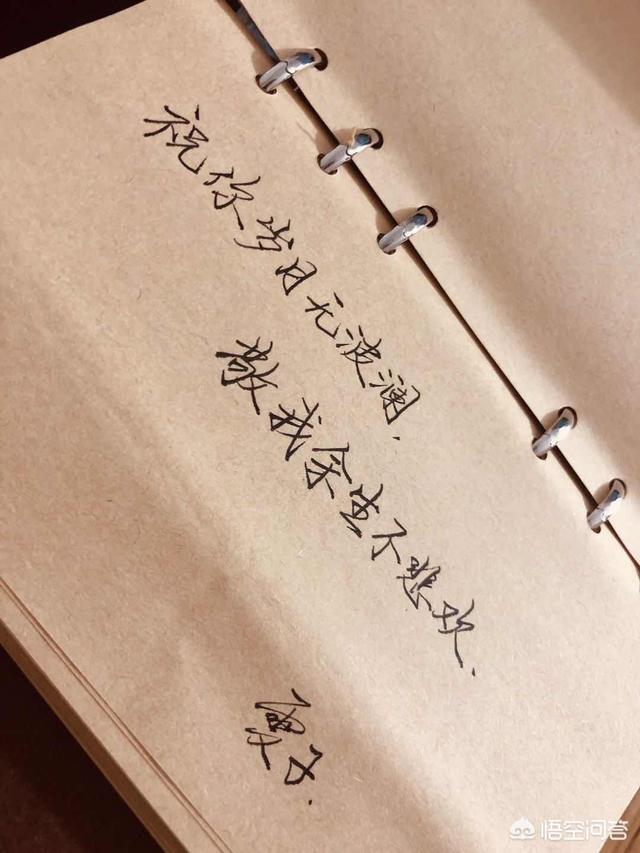 祝你岁月无波澜.
敬我余生不悲欢.
悟空问答